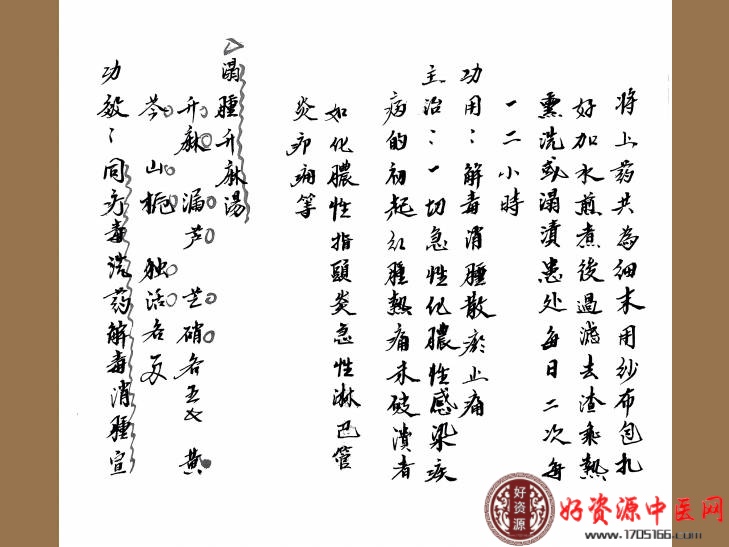 将上药共為细末用纱布包扎
好加水煎煮後過滤去渣乘熱
熏洗或溻漬患处每日二次每
一二小時
功用：解毒消腫散瘀止痛
主治：一切急性化膿性感染疾
病的初起红腫熱痛未破潰者
如化膿性指頭炎急性淋巴管
炎卯痈等
溻腫升麻湯
升麻 漏芦 芒硝各五 黄
芩 山栀 独活各
功效：同疔毒洗药解毒消腫宣
好资源
好资源中医网
www.1705166.com